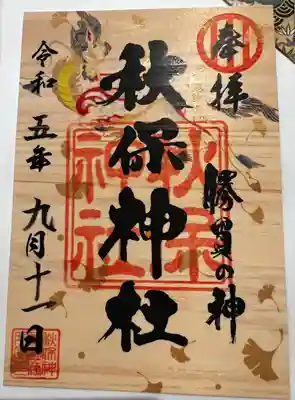 奉拝
勝負の神
秋保神社
秋保
神社
令和五年 九月十一日